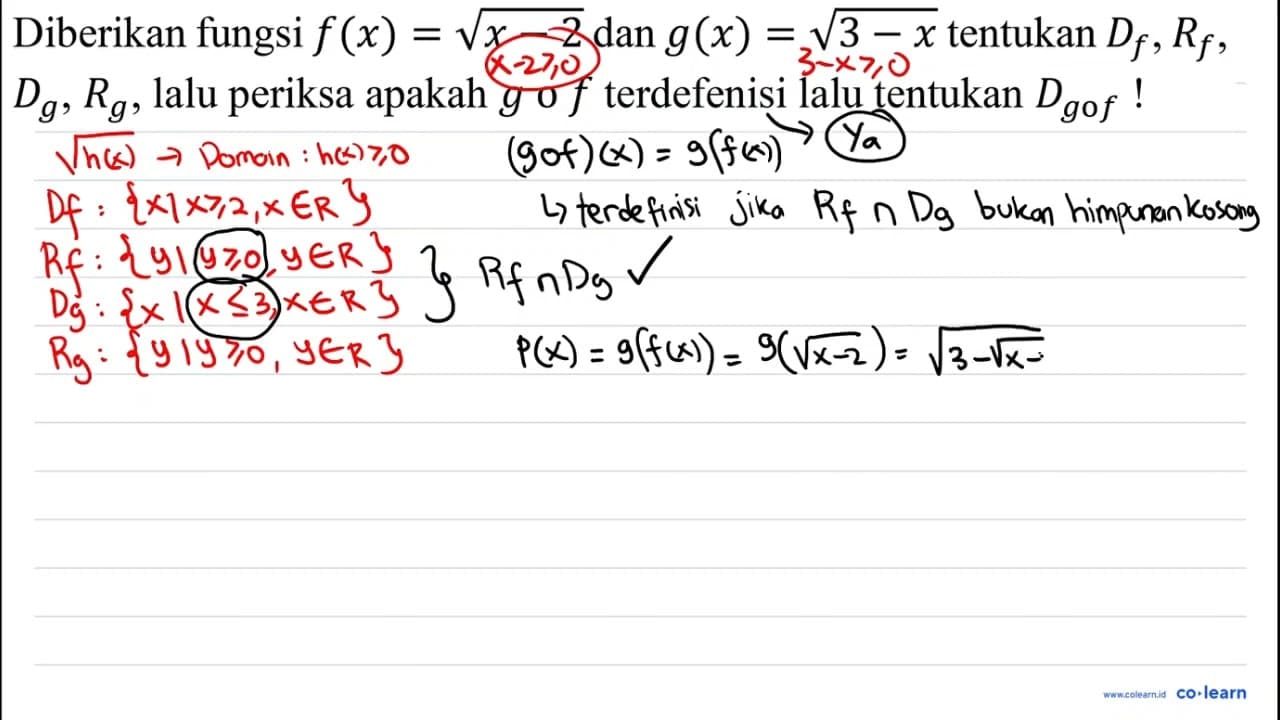 Diberikan fungsi f(x) = √x − 2 dan g(x) = √3 − x tentukan D_f, R_f,
x-2≥0 3-x≥0
D_g, R_g, lalu periksa apakah g o f terdefenisi lalu tentukan D_gof !
√h(x) → Domain : h(x)≥0
(gof)(x) = g(f(x)) → Ya
Df : {x | x≥2, x ∈ R}
↳ terdefinisi jika Rf ∩ Dg bukan himpunan kosong
Rf : {y | y≥0, y ∈ R}
Dg : {x | x ≤ 3, x ∈ R}
} Rf ∩ Dg ✓
Rg : {y | y ≥0, y ∈ R}
P(x) = g(f(x)) = g(√x-2) = √3-√x-
www.colearn.id co·learn